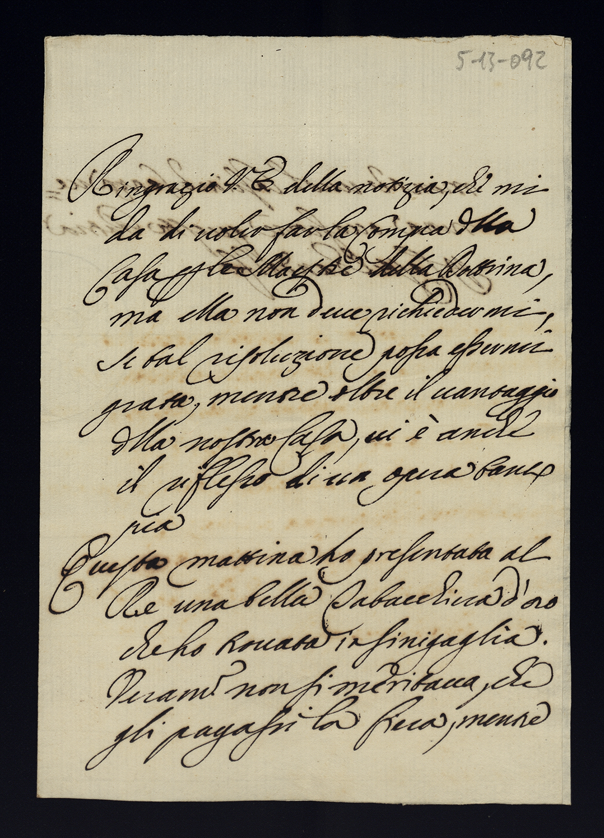 5-13-092
Ringrazio V. E. della notizia, che mi
da di voler far la compra della
Casa p le Maestre della Dottrina,
mà ella non deve richiedermi,
se tal risoluzione possa essermi
grata, mentre oltre il vantaggio
della nostra Casa, vi è anche
il riflesso di un opera tanto
pia
Questa mattina ho presentata al
Rè una bella Tabacchiera d'oro
che ho trovata in Sinigaglia.
Veram.te non si meritava, che
gli pagassi la fiera, mentre